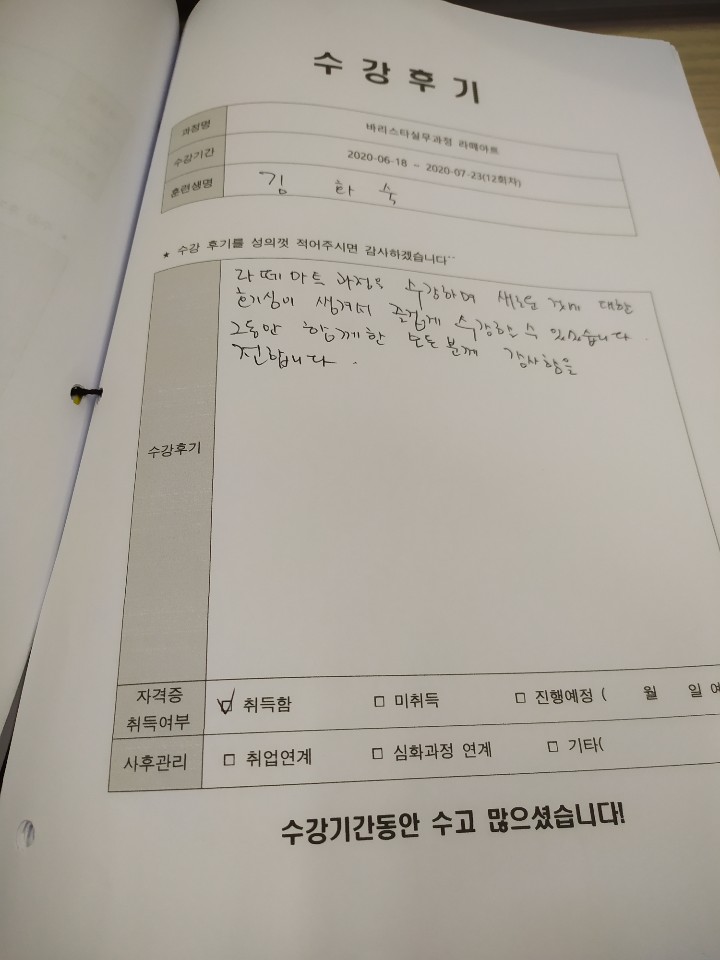 수강후기
과정명 바리스타실무과정 라떼아트
수강기간 2020-06-18 ~ 2020-07-23(12회차)
훈련생명 김 하 숙
★ 수강 후기를 성의껏 적어주시면 감사하겠습니다^^
라떼아트 과정을 수강하며 새로운 것에 대한
호기심이 생겨서 즐겁게 수강할 수 있었습니다.
그동안 함께한 모든 분께 감사함을
전합니다.
수강후기
자격증
취득여부 ☑ 취득함 □ 미취득 □ 진행예정 ( 월 일 예
사후관리 □ 취업연계 □ 심화과정 연계 □ 기타(
수강기간동안 수고 많으셨습니다!